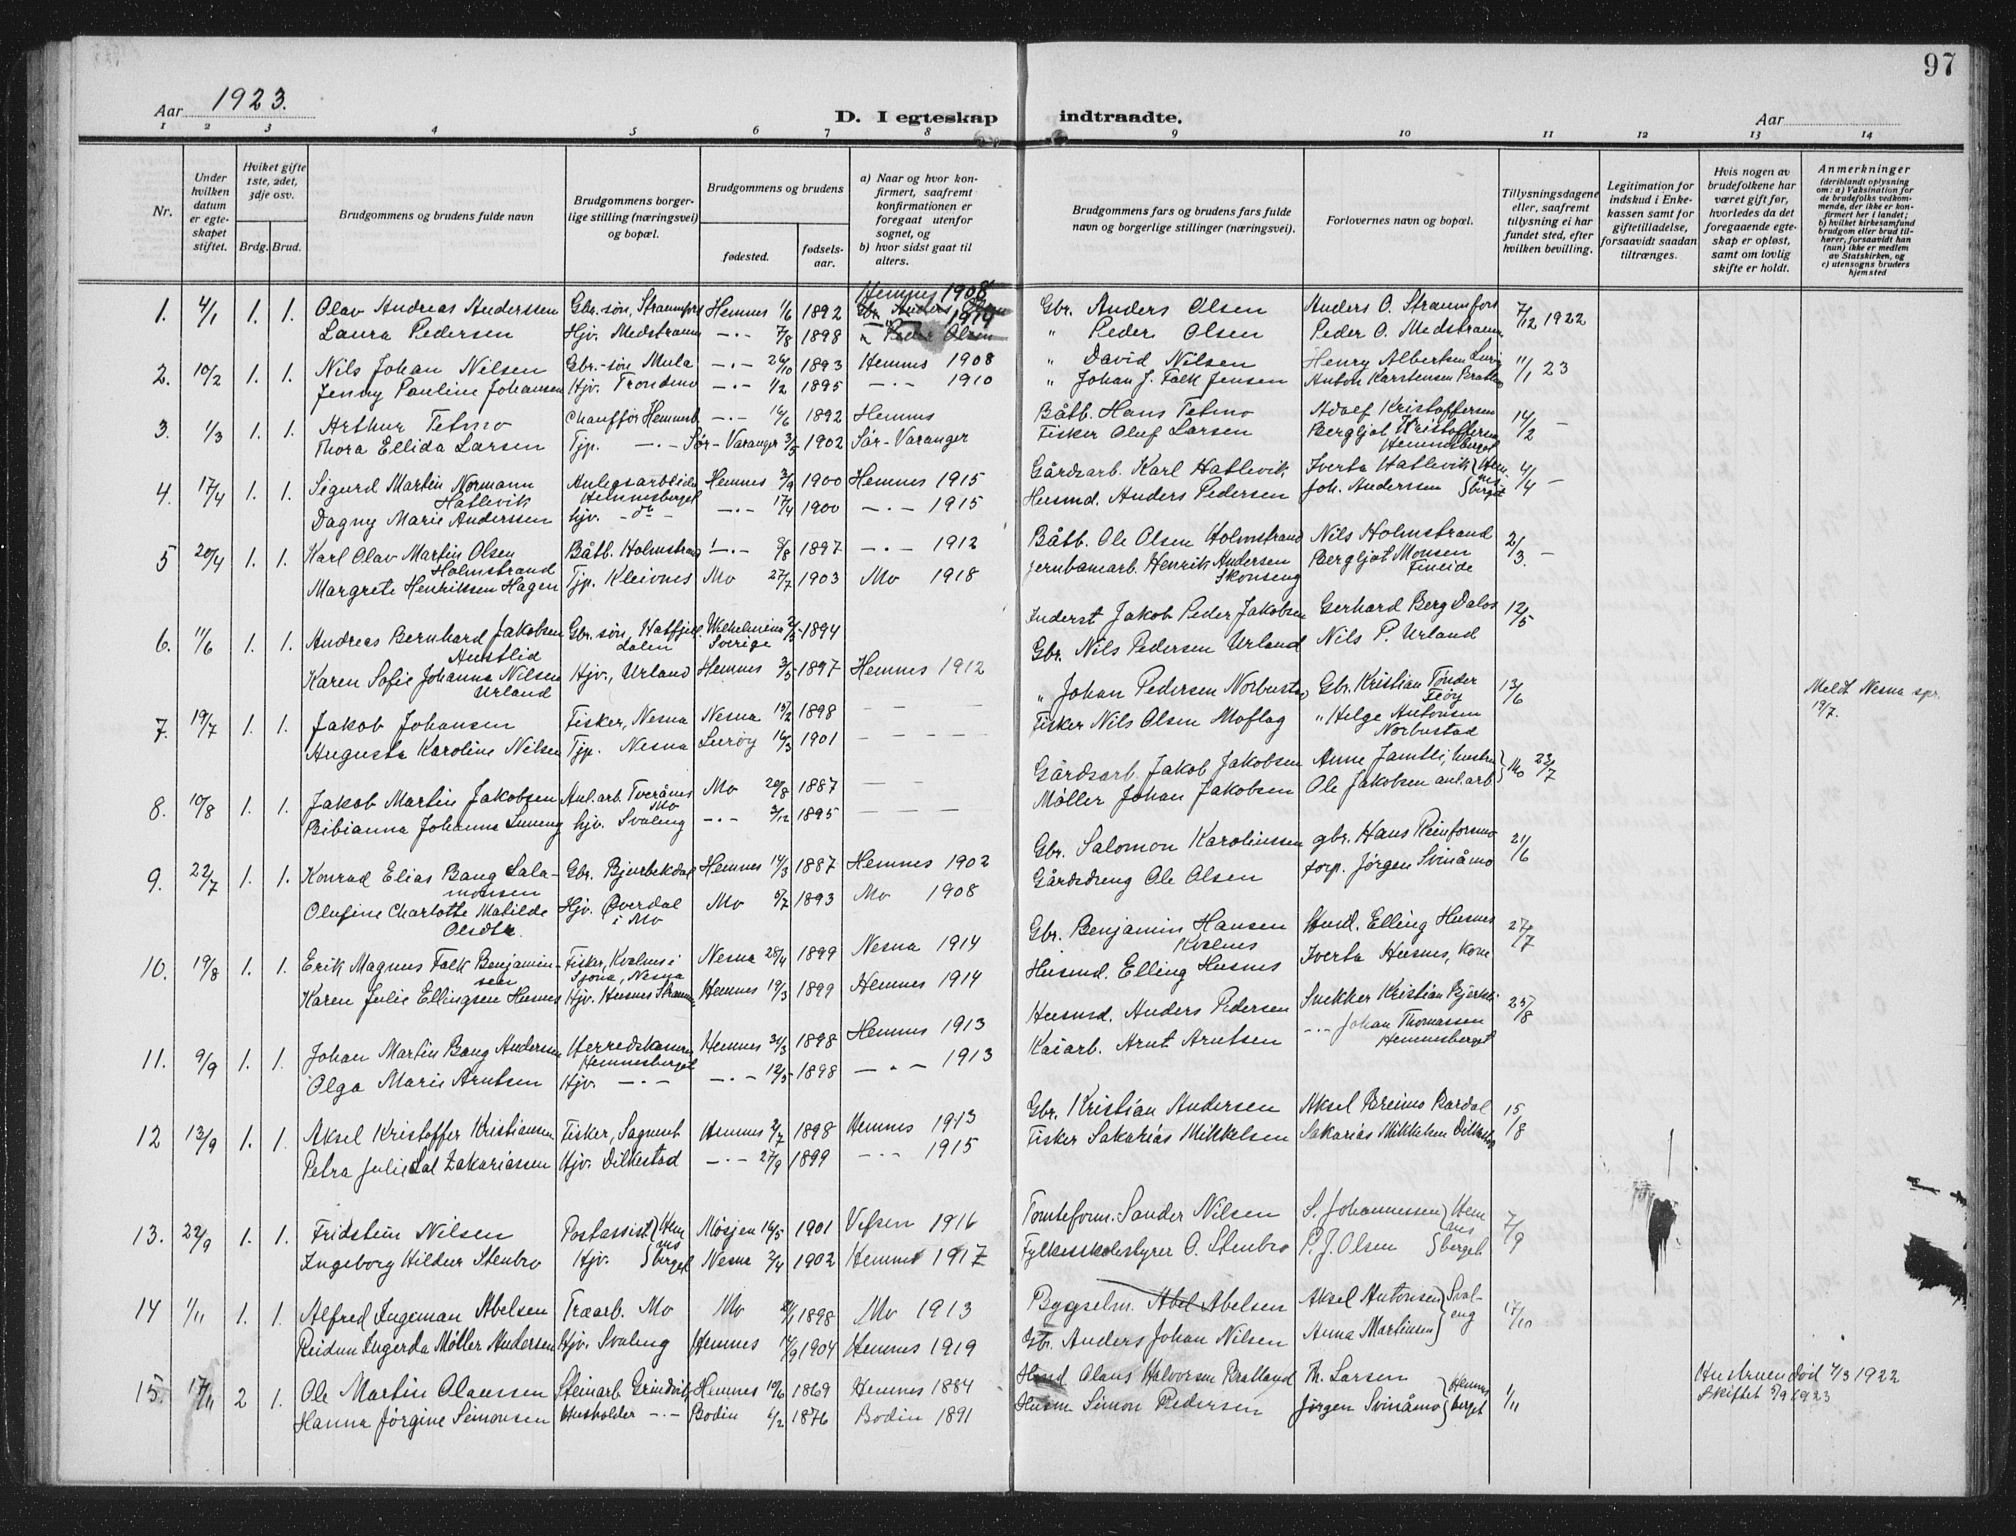 97
Aar 1923.
D. I egteskap indtraadte.
Aar
1 2 3 4 5 6 7 8 9 10 11 12 13 14
Nr.
Under hvilken datum er egteskapet stiftet.
Hviket gifte 1ste, 2det, 3dje osv.
Brdg. Brud.
Brudgommens og brudens fulde navn
Brudgommens borgerlige stilling (næringsvei) og bopæl.
Brudgommens og brudens
fødested.
fødselsaar.
a) Naar og hvor konfirmert, saafremt konfirmationen er foregaat utenfor sognet, og
b) hvor sidst gaat til alters.
Brudgommens fars og brudens fars fulde navn og borgerlige stillinger (næringsvei).
Forlovernes navn og bopæl.
Tillysningsdagene eller, saafremt tillysning ei har fundet sted, efter hvilken bevilling.
Legitimation for indskud i Enkekassen samt for giftetilladelse, forsaavidt saadan tiltrænges.
Hvis nogen av brudefolkene har været gift før, hvorledes da det foregaaende egteskap er opløst, samt om lovlig skifte er holdt.
Anmerkninger
(deriblandt oplysning om: a) Vaksination for de brudefolks vedkommende, der ikke er konfirmert her i landet; b) hvilket kirkesamfund brudgom eller brud tilhører, forsaavidt han (hun) ikke er medlem av Statskirken, og c) utensogns bruders hjemsted
1. 4/1 1. 1. Olav Andreas Anderssen Gbr. søn, Straumfors Hemnes 1/6 1892 Hemnes 1908 Gbr. Anders Olsen Anders O. Straumfors 7/12 1922
Laura Pedersen Hjv. Medstraum -.- 7/8 1898 1914 " Peder Olsen Peder O. Medstraum
2. 10/2 1. 1. Nils Johan Nilsen Gbr.-søn Mula -.- 26/10 1893 Hemnes 1908 " David Nilsen Henry Albertsen 11/1 23
Jenny Pauline Johansen Hjv. -.- 1/2 1895 -.- 1910 " Johan J. Falk Jensen Anton Karstensen
3. 1/3 1. 1. Arthur Tetmo Chauffør Hemnesb -.- 16/6 1892 Hemnes Båtb. Hans Tetmo Adolf Kristoffersen 14/2 -
Thora Ellida Larsen Tjp. -.- Sør-Varanger 3/5 1902 Sør-Varanger Fisker Oluf Larsen Bergljot Kristoffersen Hemnesberget
4. 17/4 1. 1. Sigurd Martin Normann Hatlevik Anlegsarbeider Hemnesberget Hemnes 3/9 1900 Hemnes 1915 Gårdsarb. Karl Hatlevik Iverta Hatlevik 4/4 -
Dagny Marie Anderssen hjv. -do- -.- 17/4 1900 -.- 1915 Husmd. Anders Pedersen Joh. Anderssen Hemnesberget
5 20/4 1. 1. Karl Olav Martin Olsen Holmstrand Båtb. Holmstrand -.- 8/8 1897 -.- 1912 Båtb. Ole Olsen Holmstrand Nils Holmstrand 2/3. -
Margrete Henriksen Hagen Tjp. Kleivnes Mo 27/7 1903 Mo 1918 Jernbanearb. Henrik Andersen Skonseng Bergljot Monsen Fineide
6. 11/6 1. 1. Andreas Bernhard Jakobsen Austlid Gbr. søn, Hatfjelldalen Wilhelmina Sverige 2/5 1894 Inderst Jakob Peder Jakobsen Gerhard Berg Dalos 12/5
Karen Sofie Johanna Nilsen Urland Hjv., Urland Hemnes 3/5 1897 Hemnes 1912 Gbr. Nils Pedersen Urland Nils P. Urland
7. 19/7 1. 1. Jakob Johansen Fisker, Nesna Nesna 15/2 1898 - - " Johan Pedersen Norbustad Gbr. Kristian Tønder 13/6 Meldt Nesna spr. 19/7.
Augusta Karoline Nilsen Tjp. Nesna Lurøy 16/3 1901 - - - - Fisker Nils Olsen Moflag " Helge Antonsen Norbustad
8. 10/8 1. 1. Jakob Martin Jakobsen Anl. arb. Tverånes Mo Mo 20/8 1887 - - Gårdsarb. Jakob Jakobsen Anne Jamtli, hustru 23/7
Bibianna Johanna hjv. Svaling -.- 2/12 1895 - - - Møller Johan Jakobsen Ole Jakobsen anl. arb. Mo
9. 22/7 1. 1. Konrad Elias Bang Salamonsen Gbr. Bjurbekdal Hemnes 14/3 1887 Hemnes 1902 Gbr. Salomon Karoliussen gbr. Hans Reinforsmo 21/6
Olufine Charlotte Matilde Olsdtr. Hjv. Øverdal i Mo Mo 5/7 1893 Mo 1908 Gårdsdreng Ole Olsen torp. Jørgen Svinåmo
10. 19/8 1. 1. Erik Magnus Falk Benjaminsen Fisker, Kvalnes i Sjona, Nesna Nesna 28/4 1899 Nesna 1914 Gbr. Benjamin Hansen Kvalnes Husmd. Elling Husnes 27/7
Karen Julie Ellingsen Husnes Hjv. Husnes Straumen Hemnes 19/3 1899 Hemnes 1914 Husmd. Elling Husnes Iverta Husnes, kone
11. 9/9 1. 1. Johan Martin Bang Andersen Herredskasserer Hemnesberget Hemnes 31/3 1898 Hemnes 1913 Husmd. Anders Pedersen Snekker Kristian Bjerkli 25/8
Olga Marie Arntsen Hjv. -.- -.- 12/5 1898 -.- 1913 Kaiarb. Arnt Arntsen -.- Johan Thomassen Hemnesberget
12 13/9 1. 1. Aksel Kristoffer Kristiansen Fisker, Sagmest Hemnes 2/7 1898 Hemnes 1913 Gbr. Kristian Andersen Aksel Breimo Bardal 15/8
Petra Julie Dal Zakariassen Hjv. Dilkestad -.- 27/9 1899 -.- 1915 Fisker Sakarias Mikkelsen Sakarias Mikkelsen Dilkestad
13. 22/9 1. 1. Fridstein Nilsen Postassist Hemnesberget Mosjøen 16/5 1901 Vefsen 1916 Tomteform. Sander Nilsen S. Johannessen 7/9
Ingeborg Hildur Stenbro Hjv. Nesna 2/4 1902 Hemnes 1917 Fylkesskolestyrer O. Stenbro P. J. Olsen Hemnesberget
14 1/11 1. 1. Alfred Ingeman Abelsen Traarb. Mo Mo 21/1 1898 Mo 1913 Bygselm. Abel Abelsen Aksel Antonsen 17/10
Reidun Ingerda Møller Andersen Hjv. Svaling Hemnes 14/9 1904 Hemnes 1919 Gbr. Anders Johan Nilsen Anna Martinsen Svaleng
15. 17/11 2 1. Ole Martin Olaussen Steinarb. Grindvik Hemnes 10/6 1869 Hemnes 1884 Husmd Olaus Halvorsen Bratland Th. Larsen 1/11 Hustruen død 7/3 1922
Hanna Jørgine Simonsen Husholder -.- Bodin 6/2 1876 Bodin 1891 Husm Simon Pedersen Jørgen Svinåmo Hemnesberget Skiftet 5/9 1923